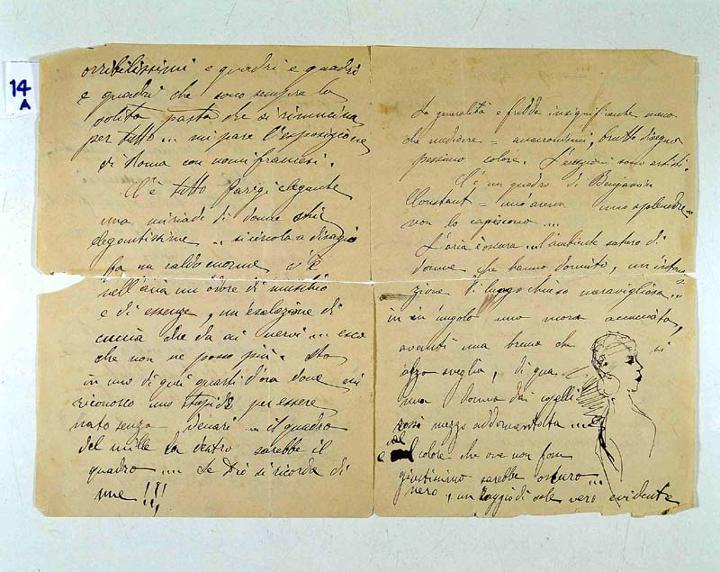 14
A
orribilissimi e quadri e quadri
e quadri che sono sempre la
solita pasta che si rimincina
per tutto... mi pare l'esposizione
di Roma con nomi francesi.
C'è tutto Parigi elegante
una miriade di donne chic
elegantissime .. si circola a disagio
fa un caldo enorme v'è
nell'aria un odore di muschio
e di essenze, un'esalazione di
che da ai nervi... esco
che non ne posso più. Sto
in uno di quei quarti d'ora dove mi
riconosco uno stupido per essere
nato senza denari... il quadro
del mille là dentro sarebbe il
quadro... Se Dio si ricorda di
me!!!
La generalità è fredda insignificante meno
che mediocre = anacronismi, brutto disegno
pessimo colore. L'eccezioni sono artisti.
C'è un quadro di Benjamin
Constant = uno splendore...
non lo capiscono...
L'aria è oscura.. l'ambiente saturo di
donne che hanno dormito, un'
di luogo chiuso meravigliosa...
in un angolo una mora accucciata,
avanti una bruna che si
alza sveglia, di qua
una donna dai capelli
rossi mezzo addormentata...
e al colore che ove non fosse
giustissimo sarebbe oscuro...
nero, un raggio di sole vero evidente